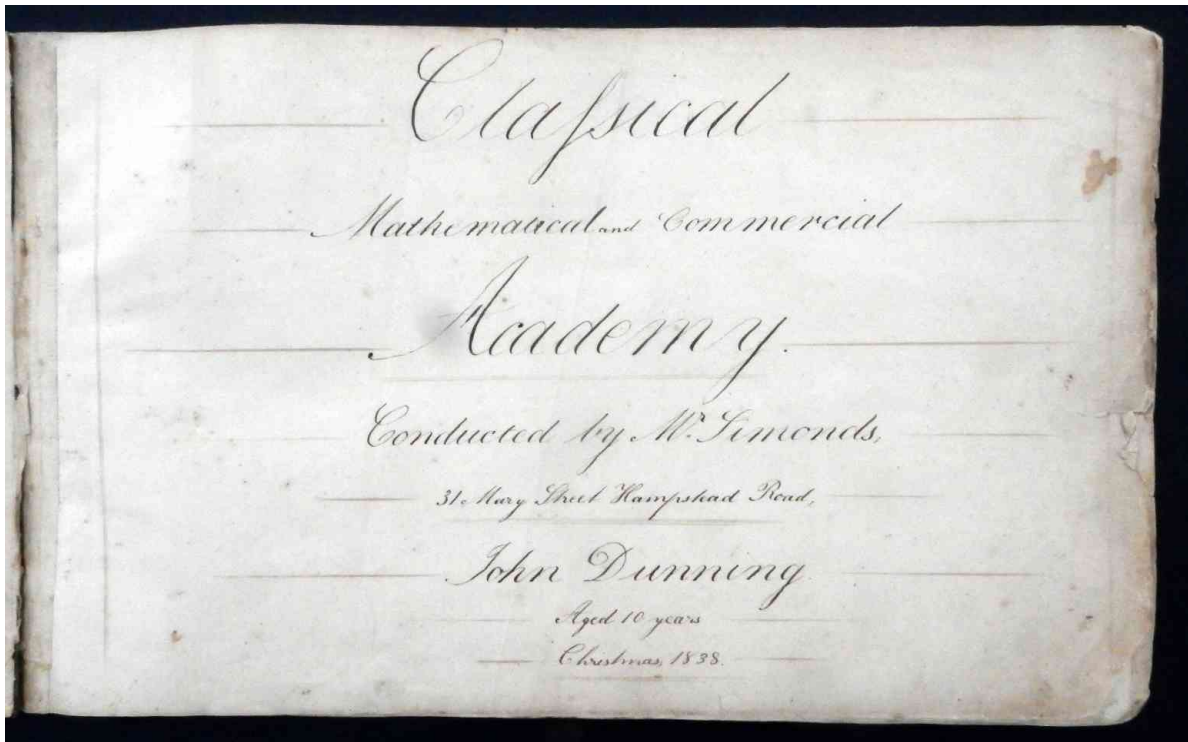 Claſsical
Mathematical and Commercial
Academy.
Conducted by Mr. Simonds,
31 Mary Street Hampstead Road,
John Dunning
Aged 10 years
Christmas, 1838.